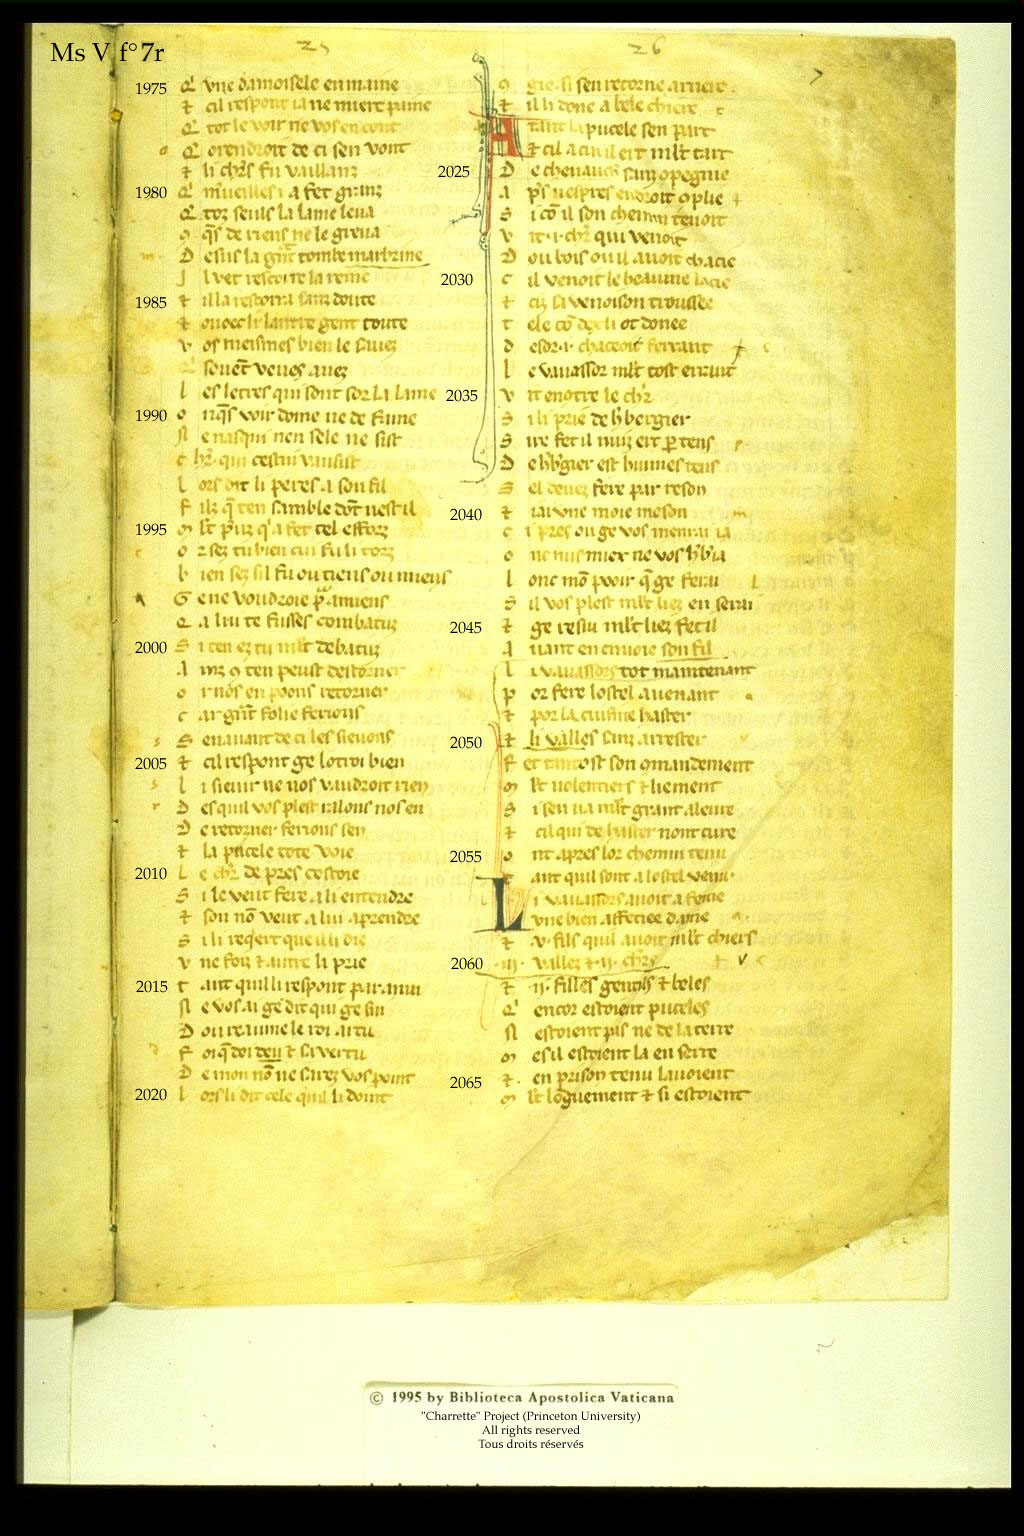 Ms V f° 7r
25
26
1975
Q' vne damoisele en maine
⁊ cil respont ia ne miere paine
Q' tot le voir ne vos en cont
Q' orendroit de ci sen vont
⁊ li chr̄s fu vaillanz
1980
Q' mueilles i a fet granz
Q' toz seuls la lame leua
o q̄s de riens ne le greua
D esus la gñt tombe marbrine
l vet rescorre la reine
1985
⁊ il la rescorra sanz doute
⁊ ouoec li lautre gent toute
v os meismes bien le sauez
Q' souēt veues auez
l es letres qui sont sor la lame
1990
o nq̄s voir dome ne de fame
N e nasqui nen sele ne sist
c hr̄. qui cestui vausist
l ors dit li peres a son fil
f ilz q̄ ten samble dōt nest il
1995
m lt' p'uz q' a fet tel efforz
o r sez tu bien cui fu li torz
b ien sez sil fu ou tiens ou miens
G e ne voudroie p' amiens
Q a lui te fusses combatuz
2000
S i ten ez tu mlt debatuz
A inz 9 ten peust destorner
o r nos en poons retorner
c ar gñt folie ferions
S en auant de ci les sieuons
2005
⁊ cil respont ge lotroi bien
l i sieuir ne nos vaudroit rien
D es quil vos plest ralons nos en
D e retorner ferions sen
⁊ la pucele tote voie
2010
L e chr̄ de pres costoie
S i le veut fere a li entendre
⁊ son nō veut a lui aprendre
S i li reqiert que il li die
v ne foiz ⁊ autre li prie
2015
t ant quil li respont par anui
N e vos ai ge dit qui ge sui
D ou reaume le roi artu
F oi q̄ doi deu ⁊ sa vertu
D e mon nō ne sarez vos point
2020
l ors li dit cele quil li doint
9 gie. si sen retorne arriere.
⁊ il li done a bele chiere
A tant la pucele sen part
⁊ cil a cui il ert mlt tart
2025
D e cheuauch sanz 9pegnie
A p's uespres endroit 9plie
S i cō il son chemin tenoit
v it .i. chr̄ qui venoit
D ou bois ou il auoit chacie
2030
c il venoit le heaume lacie
⁊ cuz sa venoison troussee
t ele cō dex li ot donee
d esor .i. chaceoir ferrant
l e vauassor mlt tost errant
2035
v it enotre le chr̄
S i li prie de h'bergier
S ire fet il nuiz ert p tens
D e h'b'gier est huimes tens
S el deuez fere par reson
2040
⁊ iai vne moie meson
c i pres ou ge vos menrai ia
o nc nus miex ne vos h'b'ia
l onc mō pooir q̄ ge ferai
S il vos plest mlt liez en serai
2045
⁊ ge resui mlt liez fet il
A uant en enuoie son fil
l i vauassors tot maintenant
p or fere lostel auenant
⁊ por la cuisine haster
2050
⁊ li valles sanz arrester
F et tantost son 9mandement
m lt uolentiers ⁊ liement
S i sen ua mlt grant aleure
⁊ cil qui de haster nont cure
2055
o nt apres lor chemin tenu
t ant quil sont a lostel venu.
L i vauassors auoit a feme
vne bien affetiee dame
⁊ .v. fils quil auoit mlt chiers
2060
.iij. vallez ⁊ .ij. chr̄s
⁊ .ij. filles gentis ⁊ beles
Q' encor estoient puceles
N estoient pas ne de la terre
m es il estoient la en serre
2065
⁊ . en prison tenu lauoient
m lt lōguement ⁊ si estoient
© 1995 by Biblioteca Apostolica Vaticana
"Charrette" Project (Princeton University)
All rights reserved
Tous droits réservés